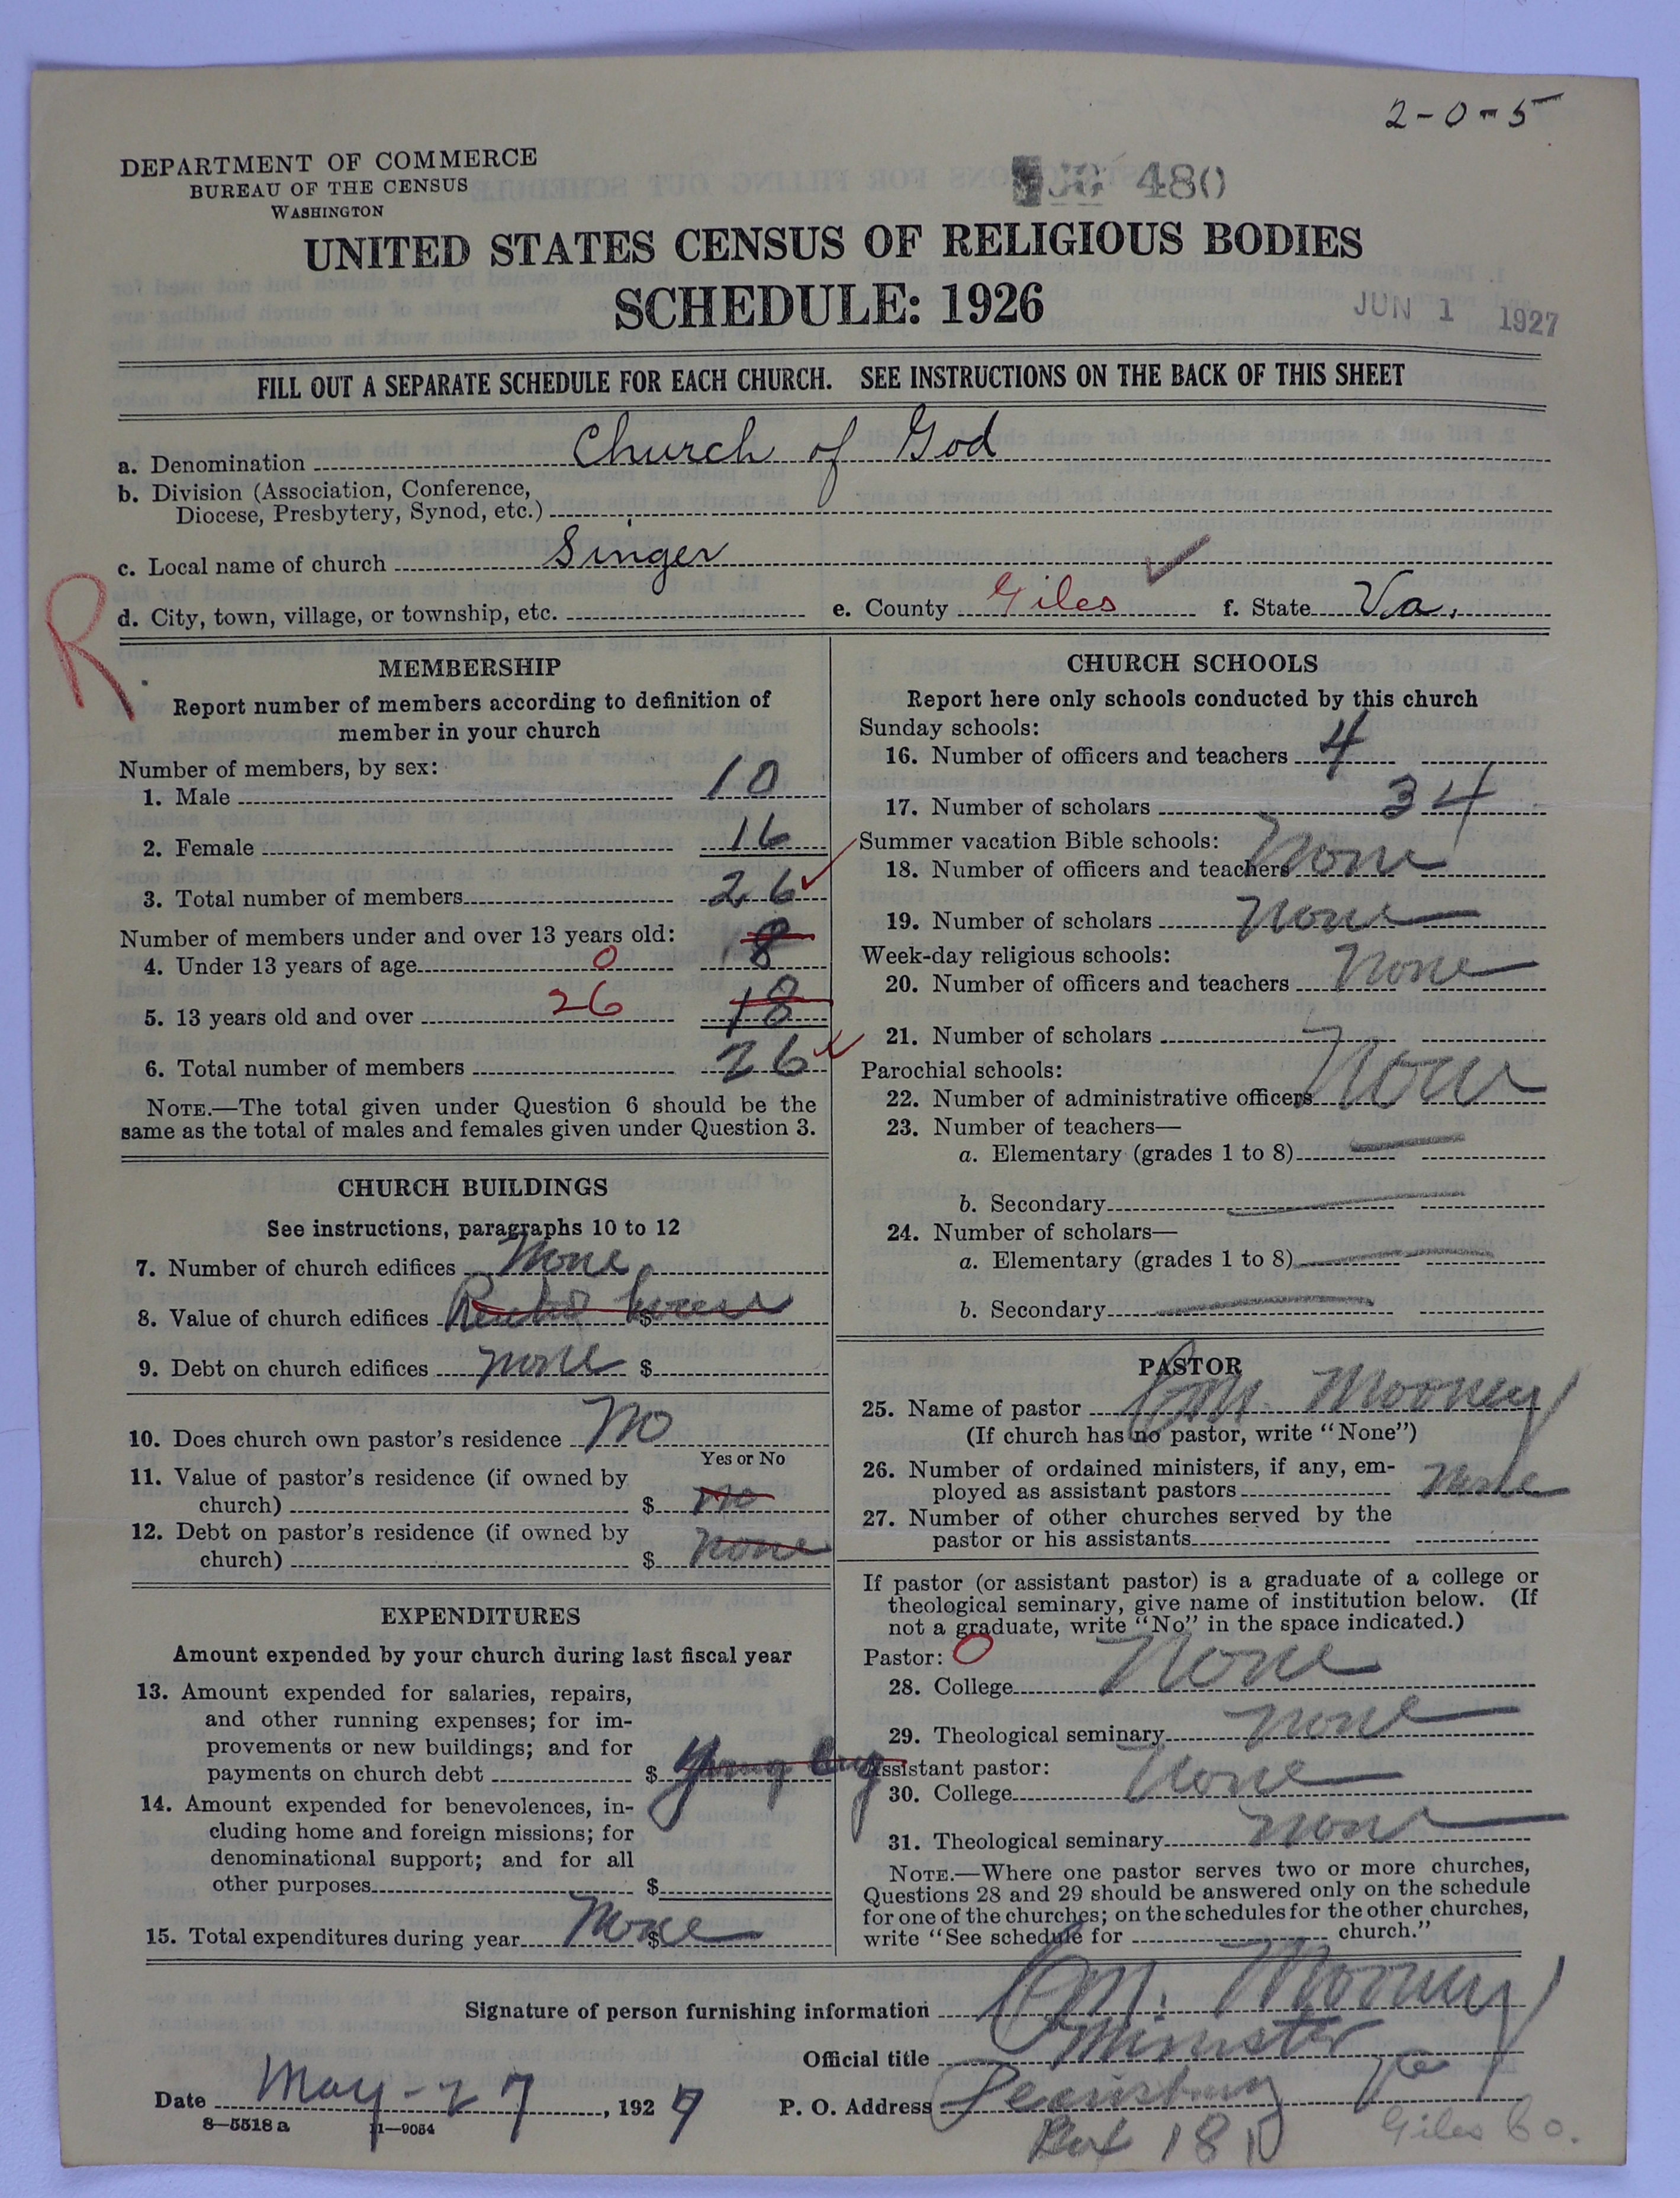 2-0-5
DEPARTMENT OF COMMERCE
BUREAU OF THE CENSUS
WASHINGTON
480
UNITED STATES CENSUS OF RELIGIOUS BODIES
SCHEDULE: 1926
JUN 1 1927
FILL OUT A SEPARATE SCHEDULE FOR EACH CHURCH. SEE INSTRUCTIONS ON THE BACK OF THIS SHEET
a. Denomination Church of God
b. Division (Association, Conference,
Diocese, Presbytery, Synod, etc.)
c. Local name of church Singer
R
d. City, town, village, or township, etc. e. County Giles f. State Va.
MEMBERSHIP
Report number of members according to definition of
member in your church
Number of members, by sex:
1. Male 10
2. Female 16
3. Total number of members 26
Number of members under and over 13 years old:
4. Under 13 years of age 0 8
5. 13 years old and over 26 18
6. Total number of members 26
NOTE.—The total given under Question 6 should be the
same as the total of males and females given under Question 3.
CHURCH BUILDINGS
See instructions, paragraphs 10 to 12
7. Number of church edifices None
8. Value of church edifices Rented house $
9. Debt on church edifices none $
10. Does church own pastor's residence No
Yes or No
11. Value of pastor's residence (if owned by
church) $ no
12. Debt on pastor's residence (if owned by
church) $ none
EXPENDITURES
Amount expended by your church during last fiscal year
13. Amount expended for salaries, repairs,
and other running expenses; for im-
provements or new buildings; and for
payments on church debt $
14. Amount expended for benevolences, in-
cluding home and foreign missions; for
denominational support; and for all
other purposes $
15. Total expenditures during year None $
CHURCH SCHOOLS
Report here only schools conducted by this church
Sunday schools:
16. Number of officers and teachers 4
17. Number of scholars 34
Summer vacation Bible schools:
18. Number of officers and teachers None
19. Number of scholars None
Week-day religious schools:
20. Number of officers and teachers None
21. Number of scholars
Parochial schools:
22. Number of administrative officers None
23. Number of teachers—
a. Elementary (grades 1 to 8)
b. Secondary
24. Number of scholars—
a. Elementary (grades 1 to 8)
b. Secondary
PASTOR
25. Name of pastor M. Mooney
(If church has no pastor, write "None")
26. Number of ordained ministers, if any, em-
ployed as assistant pastors None
27. Number of other churches served by the
pastor or his assistants
If pastor (or assistant pastor) is a graduate of a college or
theological seminary, give name of institution below. (If
not a graduate, write "No" in the space indicated.)
Pastor: 0
28. College None
29. Theological seminary none
Assistant pastor:
30. College None
31. Theological seminary none
NOTE.—Where one pastor serves two or more churches,
Questions 28 and 29 should be answered only on the schedule
for one of the churches; on the schedules for the other churches,
write "See schedule for church."
Signature of person furnishing information M. Mooney
Official title Minister
Date May-27, 1927 P. O. Address Pearisburg Va
8—5518 a 11—9084 Box 181 Giles Co.